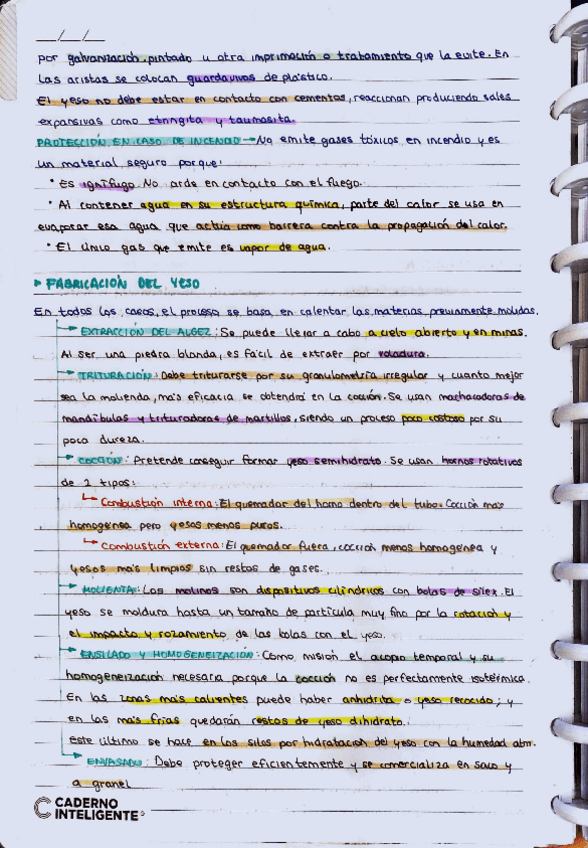 __/__/__
por galvanización, pintado u otra imprimación o tratamiento que la evite. En
las aristas se colocan guardavivos de plástico.
El yeso no debe estar en contacto con cementos, reaccionan produciendo sales
expansivas como etringita y taumasita.
PROTECCIÓN EN CASO DE INCENDIO → No emite gases tóxicos en incendio y es
un material seguro porque:
· Es ignífugo. No arde en contacto con el fuego.
· Al contener agua en su estructura química, parte del calor se usa en
evaporar esa agua que actúa como barrera contra la propagación del calor.
· El único gas que emite es vapor de agua.
▸ FABRICACIÓN DEL YESO
En todos los casos, el proceso se basa en calentar las materias previamente molidas.
→ EXTRACCIÓN DEL ALGEZ: Se puede llevar a cabo a cielo abierto y en minas.
Al ser una piedra blanda, es fácil de extraer por voladura.
→ TRITURACIÓN: Debe triturarse por su granulometría irregular y cuanto mejor
sea la molienda, más eficacia se obtendrá en la cocción. Se usan machacadoras de
mandíbulas y trituradoras de martillos, siendo un proceso poco costoso por su
poca dureza.
→ COCCIÓN: Pretende conseguir formar yeso semihidrato. Se usan hornos rotativos
de 2 tipos:
↳ Combustión interna: El quemador del horno dentro del tubo. Cocción más
homogénea pero yesos menos puros.
↳ Combustión externa: El quemador fuera, cocción menos homogénea y
yesos más limpios sin restos de gases.
→ MOLIENTA: Los molinos son dispositivos cilíndricos con bolas de sílex. El
yeso se moldura hasta un tamaño de partícula muy fino por la rotación y
el impacto y rozamiento de las bolas con el yeso.
→ ENSILADO Y HOMOGENEIZACIÓN: Como misión el acopio temporal y su
homogeneización necesaria porque la cocción no es perfectamente isotérmica.
En las zonas más calientes puede haber anhidrita o yeso recocido; y
en las más frías quedarán restos de yeso dihidrato.
Este último se hace en los silos por hidratación del yeso con la humedad atm.
→ ENVASADO: Debe proteger eficientemente y se comercializa en saco y
a granel
CADERNO
INTELIGENTE®